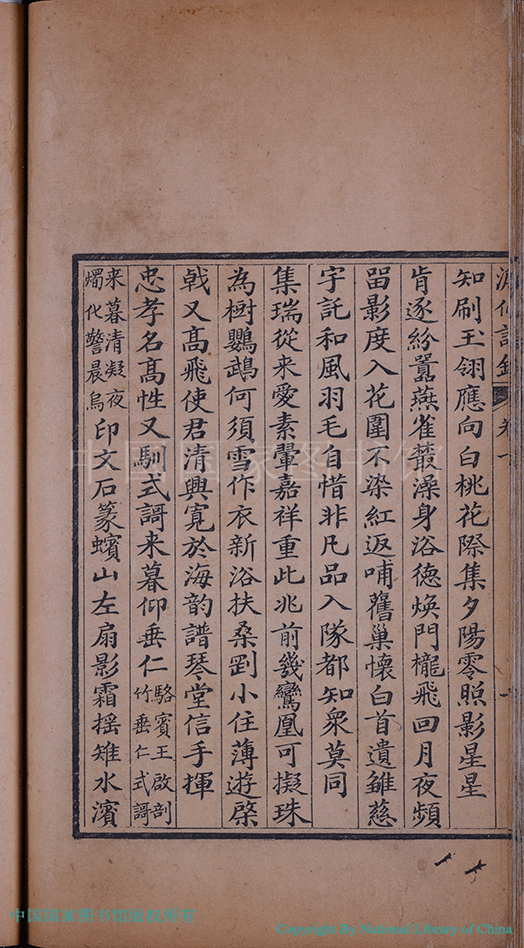 卷一
知刷玉翎應向白桃花際集夕陽零照影星星
肯逐紛囂燕雀叢澡身浴德煥門櫳飛回月夜頻
留影度入花圍不染紅返哺舊巢懷白首遺雛慈
宇託和風羽毛自惜非凡品入隊都知衆莫同
集瑞從来愛素翬嘉祥重此兆前幾鸞凰可擬珠
為樹鸚鵡何須雪作衣新浴扶桑剄小住薄遊棨
戟又高飛使君清興寛於海韵譜琴堂信手揮
忠孝名高性又馴式謌来暮仰垂仁駱賓王啟剖
竹垂仁式謌
来暮清凝夜
燭化警晨烏印文石篆蠙山左扇影霜揺雉水濱
中国国家图书馆
中国国家图书馆版权所有
Copyright By National Library of China